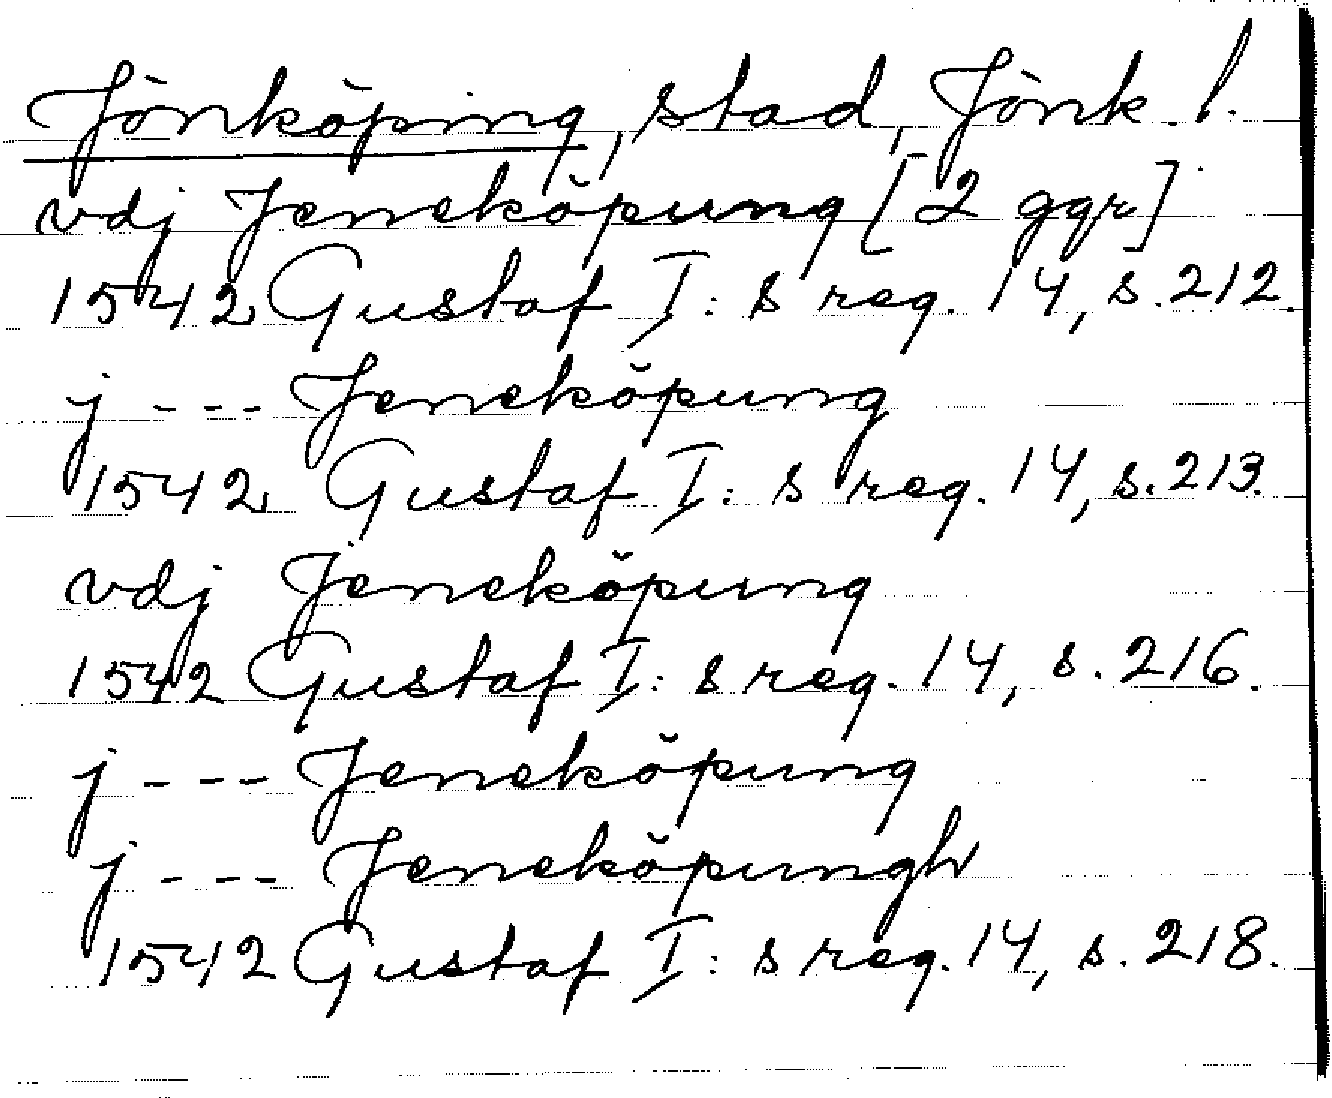 Jönköping, stad, Jönk. l.
vdj Jeneköpung [2 ggr]
1542 Gustaf I: s reg. 14, s. 212.
j --- Jeneköpung
1542 Gustaf I: s reg. 14, s. 213.
vdj Jeneköpung
1542 Gustaf I: s reg. 14, s. 216.
j --- Jeneköpung
j --- Jeneköpungh
1542 Gustaf I: s reg. 14, s. 218.